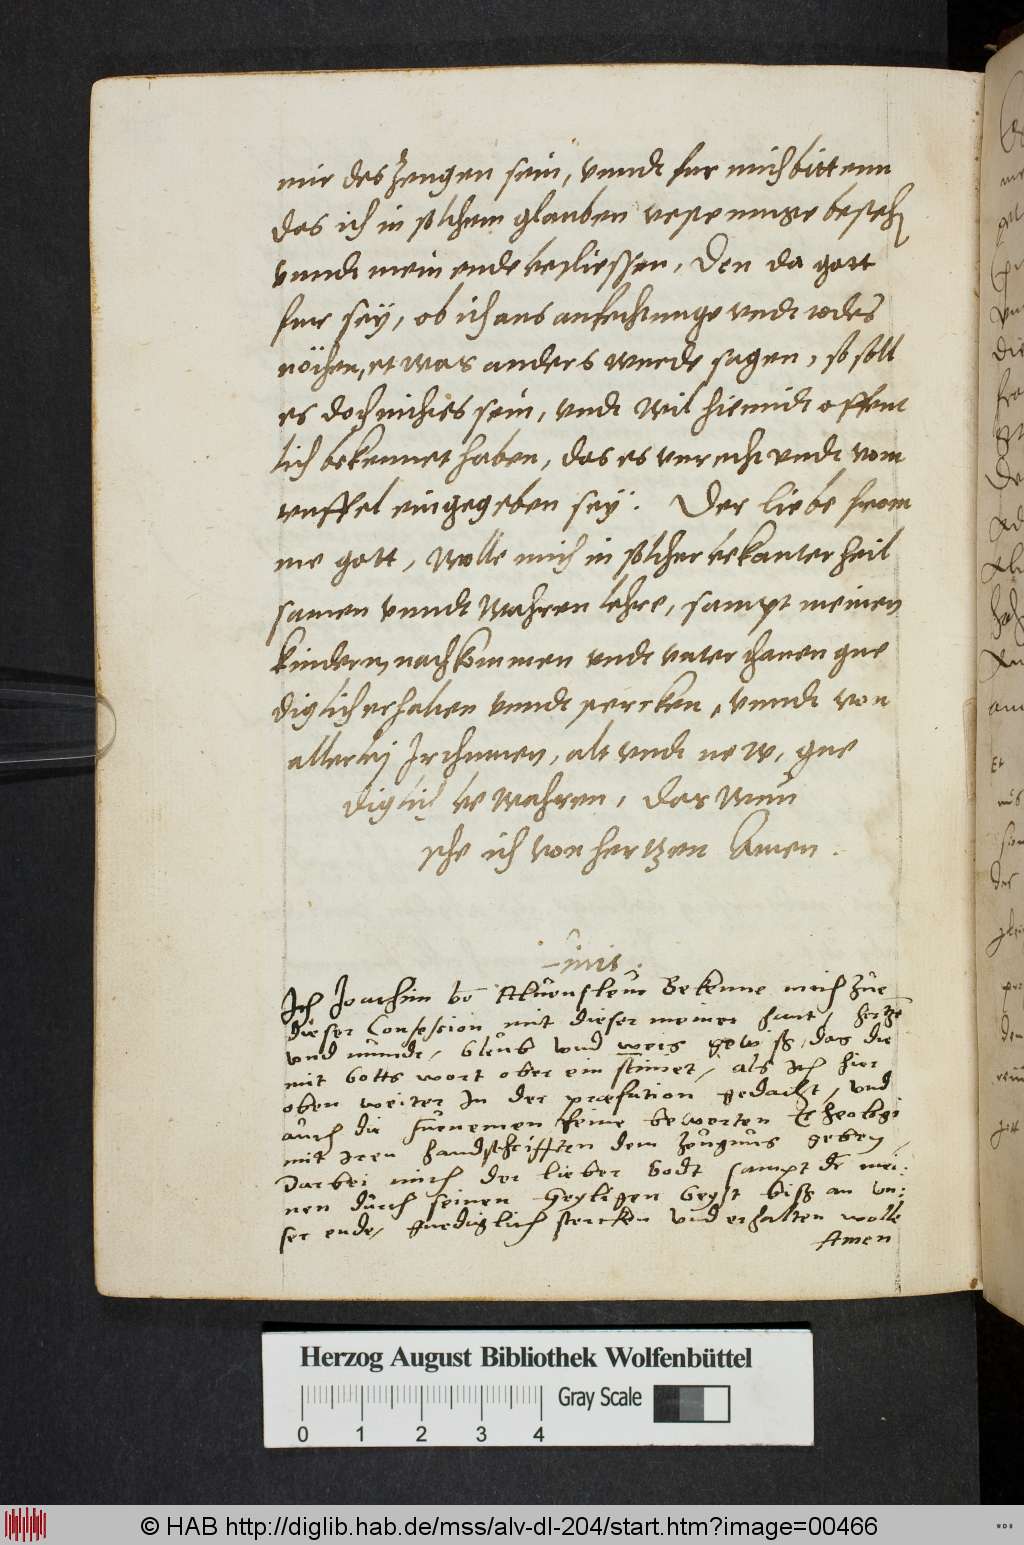 mir des zeugen sein, vnndt fur mich bittenn
das ich in solchem glauben veste muge besteh
vnndt mein ende besliessen, Den da gott
fur sey, ob ich aus anfechtunge vndt todes
nöthen, etwas anders wurde sagen, so soll
es doch nichtes sein, vndt wil hiemidt offent
lich bekennet haben, das es vnrecht vndt vom
teuffel eingegeben sey. Der liebe from
me gott, wolle mich in solcher bekanter heil
samen vnndt wahren lehre, sampt meinen
kindern, nachkommen vndt vnterthanen gne
diglich erhalten vnndt stercken, vnndt von
allerley Irthumen, alt vndt new, gne
diglich bewahren, das wun
sche ich von hertzen Amen.
Finis.
Ich Joachim vo Alvensleve Bekenne mich zue
dieser Confession mit dieser meiner hant, hertze
vnd munde, Gleub vnd weis gewiss, das die
mit Gotts wort ober ein stimet, als Ich hier
oben weiter In der præfation gedacht, vnd
auch die furnemen seine bewerten Theologi
mit iren handschrifften dem zeugnus geben,
Darbei mich der lieber Godt sampt de mei:
nen durch seinen Heyligen Geyst biss an vn:
ser ende, gnediglich stercken vnd erhalten wolle
Amen
Herzog August Bibliothek Wolfenbüttel
Gray Scale
0 1 2 3 4
© HAB http://diglib.hab.de/mss/alv-dl-204/start.htm?image=00466